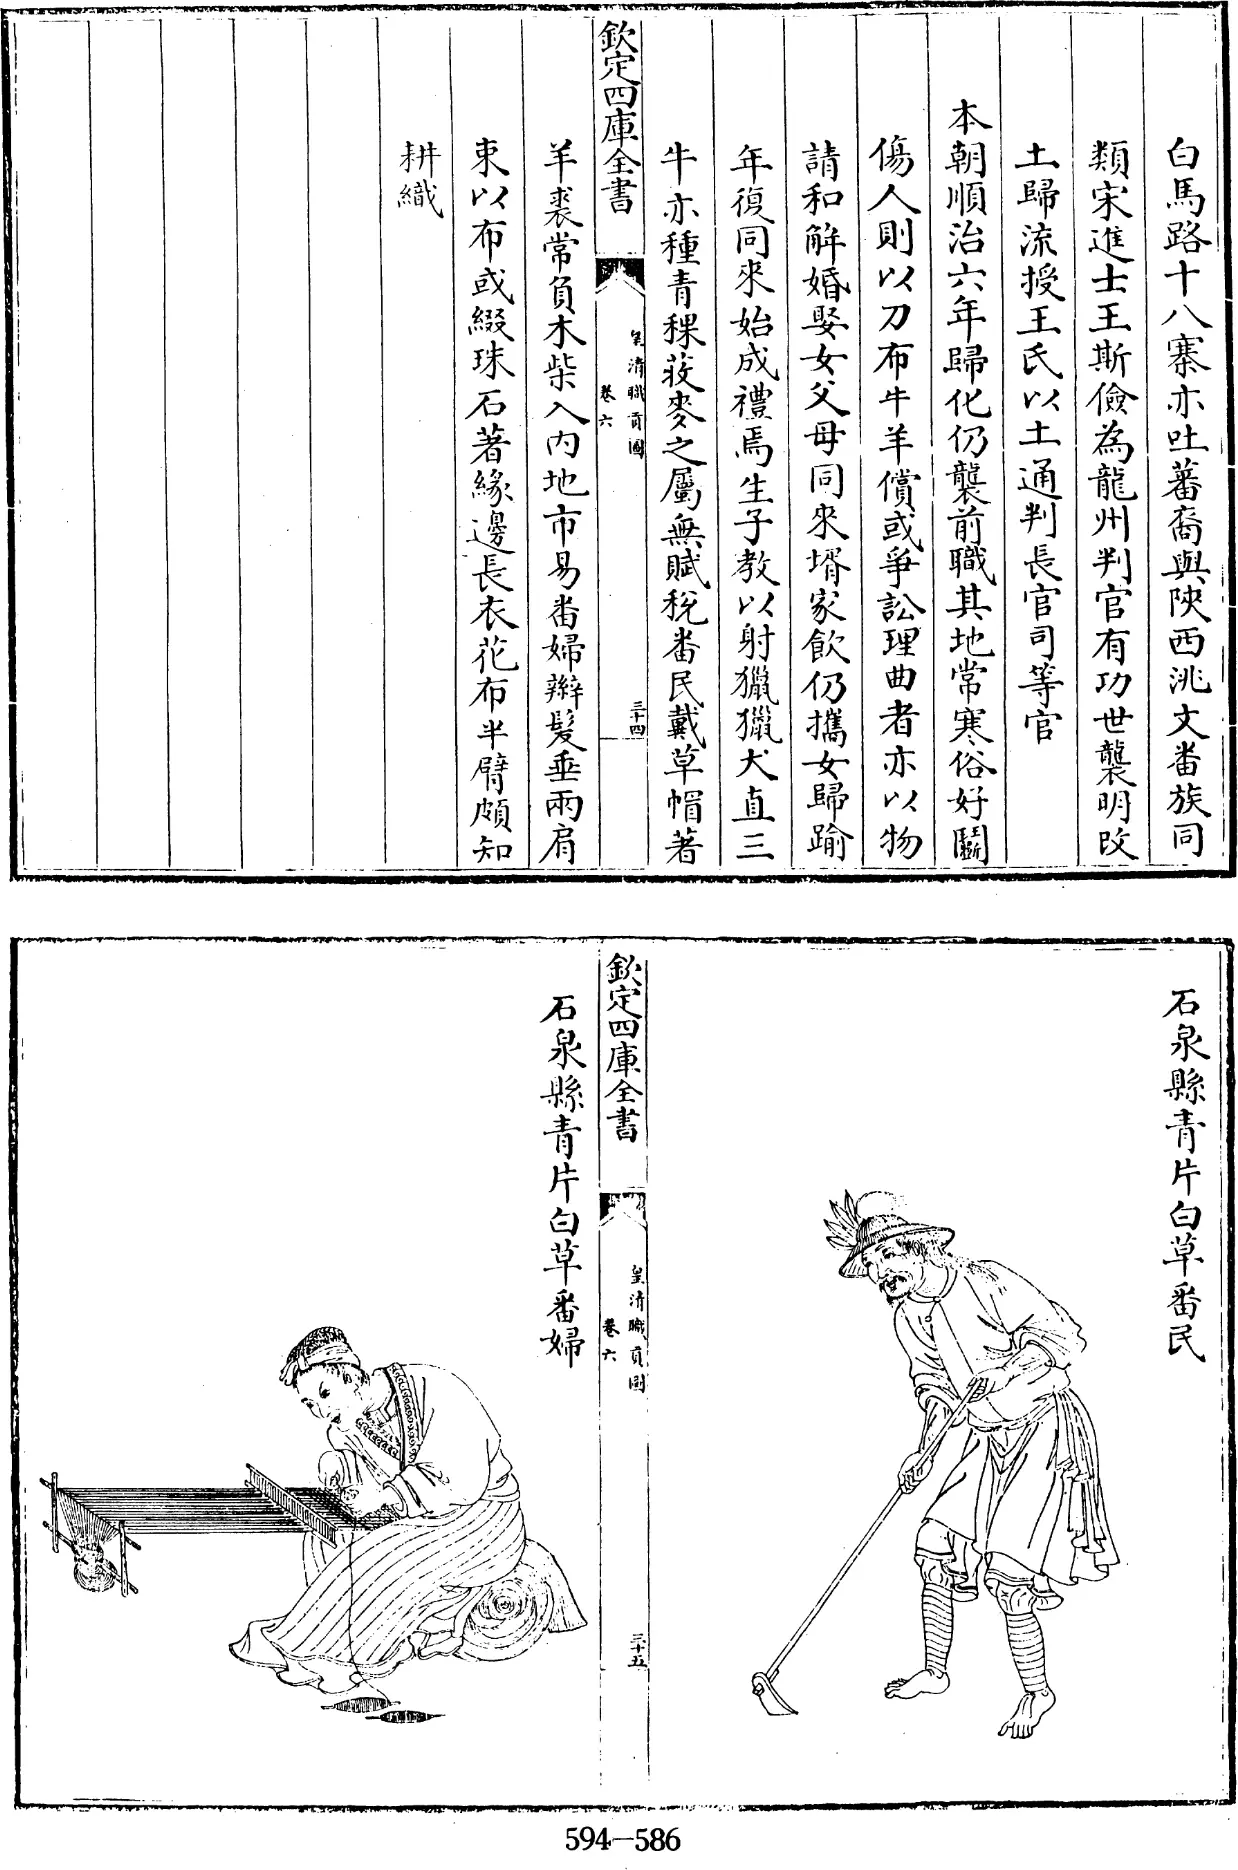 白馬路十八寨亦吐蕃裔與陜西洮文番族同
類宋進士王斯儉為龍州判官有功世襲明改
土歸流授王氏以土通判長官司等官
本朝順治六年歸化仍襲前職其地常寒俗好鬭
傷人則以刀布牛羊償或爭訟理曲者亦以物
請和解婚娶女父母同來壻家飲仍攜女歸踰
年復同來始成禮焉生子教以射獵獵犬直三
欽定四庫全書
皇清職貢圖
卷六
三十四
牛亦種青稞荍麥之屬無賦稅番民戴草帽著
羊裘常負木柴入內地市易番婦辮髮垂兩肩
束以布或綴珠石著緣邊長衣花布半臂頗知
耕織
石泉縣青片白草番民
欽定四庫全書
皇清職貢圖
卷六
三十五
石泉縣青片白草番婦
594—586